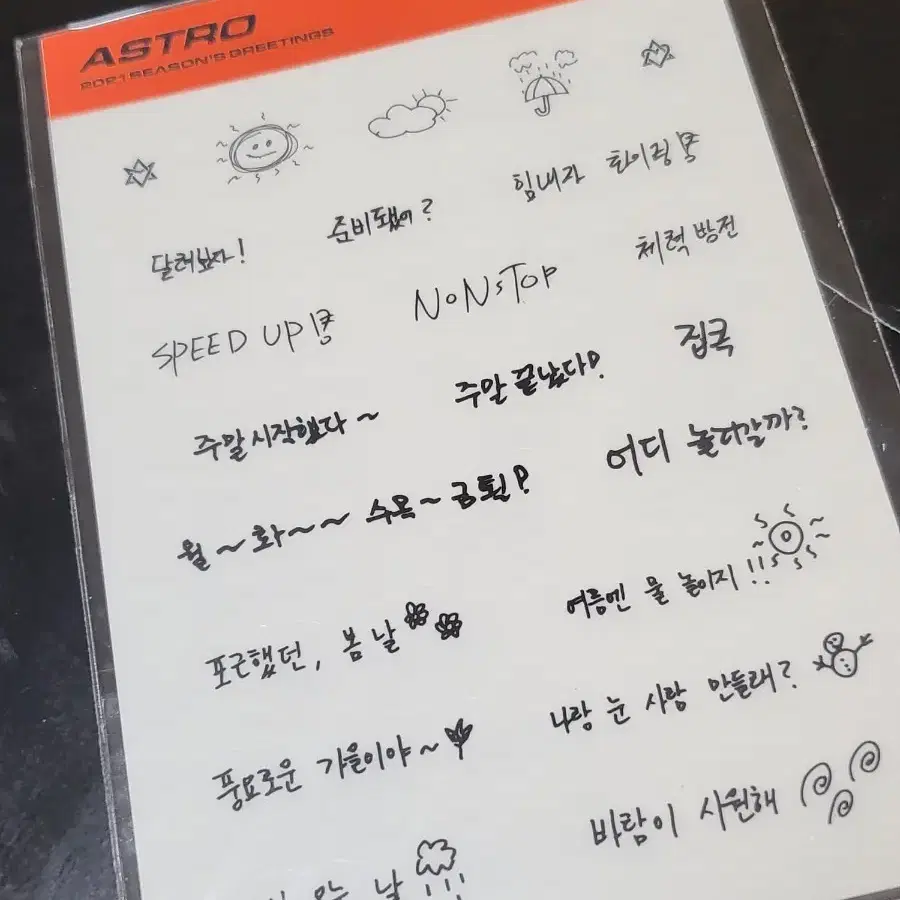 ASTRO
2021 SEASON'S GREETINGS
달려보자! 준비됐어? 힘내라 화이링!
SPEED UP! NONSTOP 체력 방전
주말 시작했다~ 주말 끝났다! 집콕
월~화~~ 수목~금퇼! 어디 놀러갈까?
포근했던, 봄 날 여름엔 물 놀이지!!
풍요로운 가을이야~ 나랑 눈 사람 만들래?
바람이 시원해
오는 날